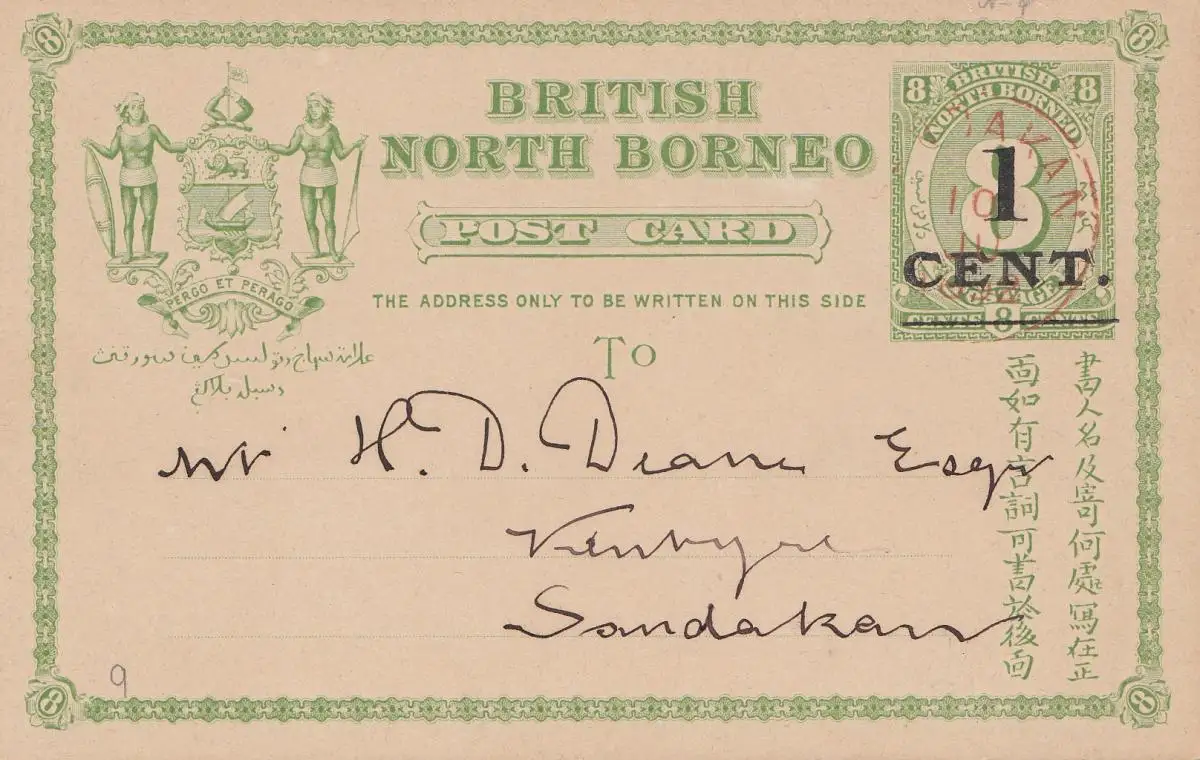 8
8
8 BRITISH 8
NORTH BORNEO
8
1
CENT.
POSTAGE
CENTS 8 CENTS
BRITISH
NORTH BORNEO
POST CARD
PERGO ET PERAGO
THE ADDRESS ONLY TO BE WRITTEN ON THIS SIDE
TO
書人名及寄何處寫在正
面如有言詞可書於後面
Mr H. D. Deane Esqr
Sandakan
9
8
8